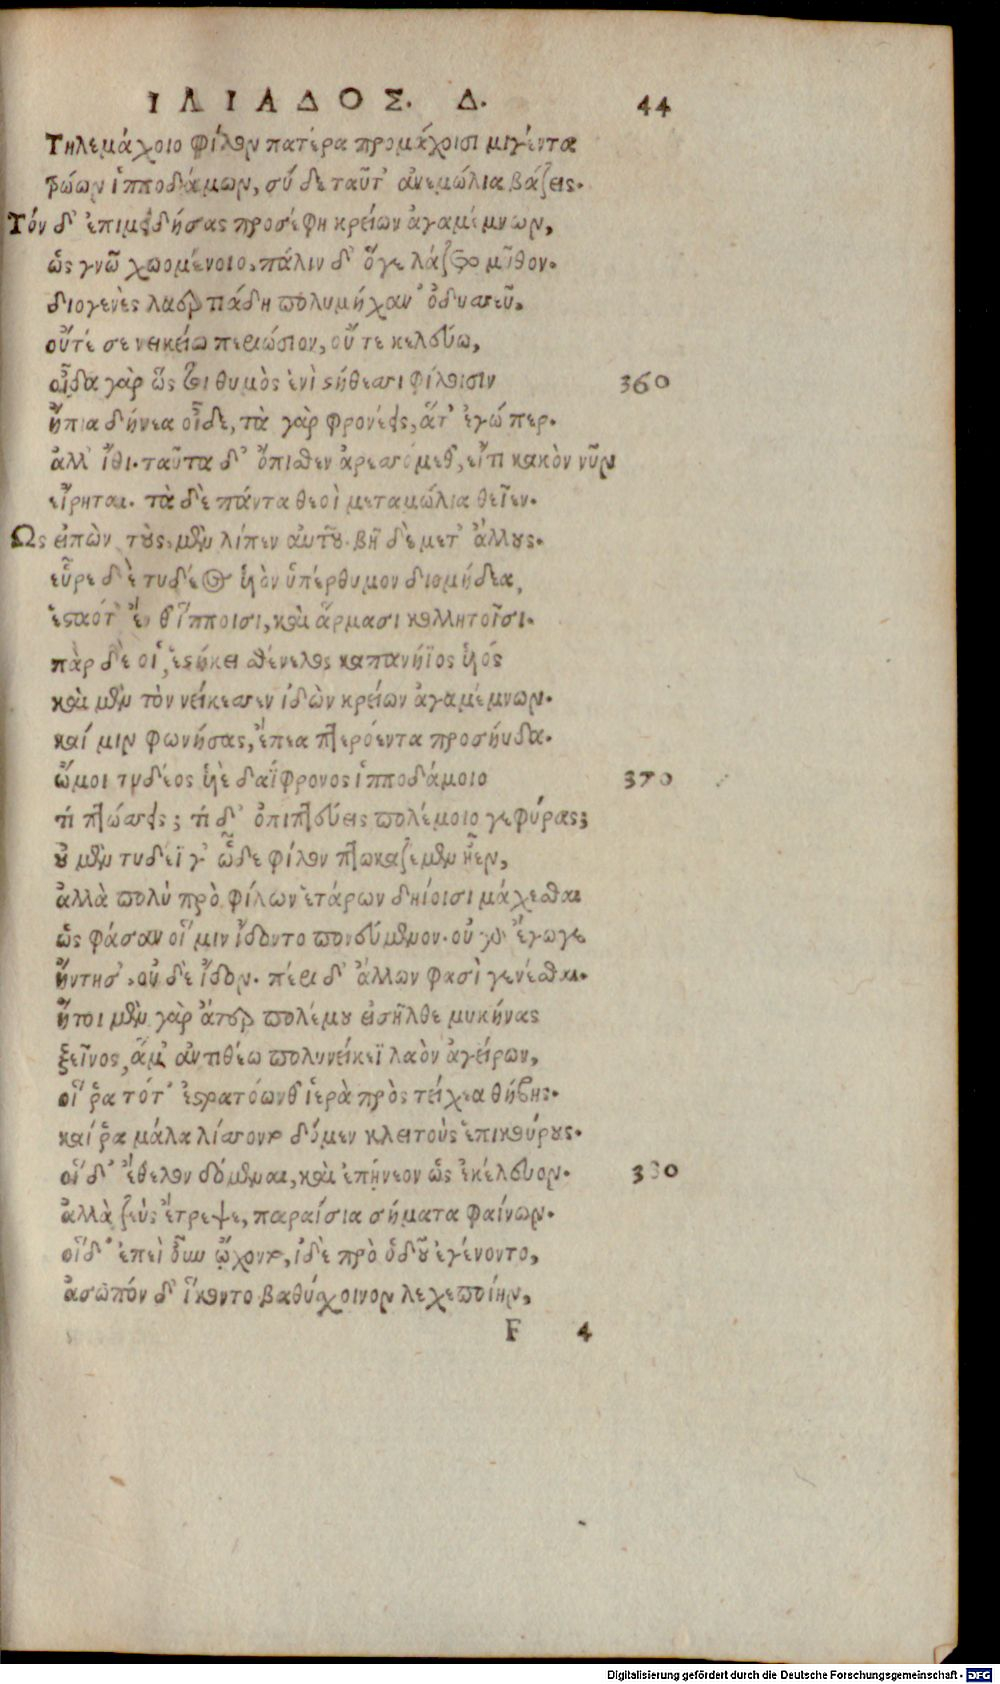 ΙΛΙΑΔΟΣ. Δ. 44
Τηλεμάχοιο φίλον πατέρα προμάχοισι μιγέντα
τρώων ἱπποδάμων, σύ δε ταῦτ' ἀνεμώλια βάζεις.
Τόν δ' ἐπιμειδήσας προσέφη κρείων ἀγαμέμνων,
ὡς γνῶ χωομένοιο, πάλιν δ' ὅγε λάζετο μῦθον.
διογενὲς λαερτιάδη πολυμήχαν' ὀδυσεῦ,
οὔτέ σε νεικείω περιώσιον, οὔτε κελεύω,
οἶδα γὰρ ὥς τοι θυμὸς ἐνὶ στήθεσι φίλοισιν 360
ἤπια δήνεα οἶδε, τὰ γὰρ φρονέεις, ἅτ' ἐγώ περ.
ἀλλ' ἴθι. ταῦτα δ' ὄπισθεν ἀρεσόμεθ', εἴτι κακὸν νῦν
εἴρηται. τὰ δὲ πάντα θεοὶ μεταμώλια θεῖεν.
Ως εἰπὼν τοὺς μὲν λίπεν αὐτοῦ. βῆ δὲ μετ' ἄλλους.
εὗρε δὲ τυδέος υἱὸν ὑπέρθυμον διομήδεα,
ἑσταότ' ἔν θ' ἵπποισι, καὶ ἅρμασι κολλητοῖσι.
πὰρ δὲ οἱ, ἑστήκει σθένελος καπανήϊος υἱός
καὶ μὲν τὸν νείκεσεν ἰδὼν κρείων ἀγαμέμνων.
καί μιν φωνήσας, ἔπεα πτερόεντα προσηύδα.
ὤμοι τυδέος υἱὲ δαΐφρονος ἱπποδάμοιο 370
τί πτώσεις; τί δ' ὀπιπτεύεις πολέμοιο γεφύρας;
οὐ μὲν τυδέϊ γ' ὧδε φίλον πτωκαζέμεν ἦεν,
ἀλλὰ πολὺ πρὸ φίλων ἑτάρων δηίοισι μάχεσθαι
ὡς φάσαν οἵ μιν ἴδοντο πονεύμενον. οὐ γὰρ ἔγωγε
ἤντησ', οὐδὲ ἴδον. πέρι δ' ἄλλων φασὶ γενέσθαι.
ἤτοι μὲν γὰρ ἄτερ πολέμου εἰσῆλθε μυκήνας
ξεῖνος, ἅμ' ἀντιθέω πολυνείκεϊ λαὸν ἀγείρων,
οἵ ῥα τότ' ἐστρατόωνθ' ἱερὰ πρὸς τείχεα θήβης.
καί ῥα μάλα λίσοντο δόμεν κλειτοὺς ἐπικούρους.
οἵ δ' ἔθελον δόμεναι, καὶ ἐπῄνεον ὡς ἐκέλευον. 380
ἀλλὰ ζεὺς ἔτρεψε, παραίσια σήματα φαίνων.
οἵ δ' ἐπεὶ οὖν ᾤχοντο, ἰδὲ πρὸ ὁδοῦ ἐγένοντο,
ἀσωπόν δ' ἵκοντο βαθύχοινον λεχεποίην,
F 4
Digitalisierung gefördert durch die Deutsche Forschungsgemeinschaft - DFG